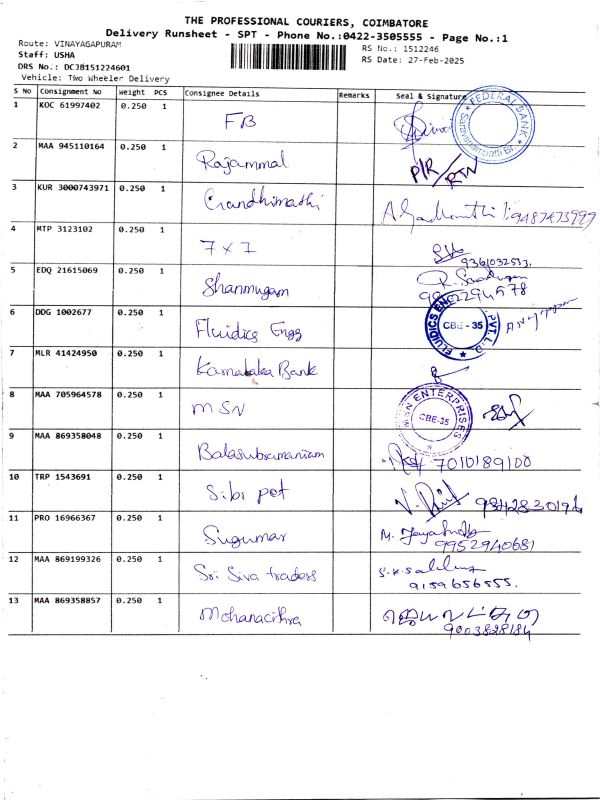 THE PROFESSIONAL COURIERS, COIMBATORE
Delivery Runsheet - SPT - Phone No.:0422-3505555 - Page No.:1
Route: VINAYAGAPURAM
Staff: USHA
DRS No.: DCJB151224601
Vehicle: Two Wheeler Delivery
RS No.: 1512246
RS Date: 27-Feb-2025
S No Consignment No Weight PCS Consignee Details Remarks Seal & Signature
1 KOC 61997402 0.250 1 FB FEDERAL BANK
2 MAA 945110164 0.250 1 Rajammal P/R/RTN
3 KUR 3000743971 0.250 1 Gandhimathi
4 MTP 3123102 0.250 1 7x7 9361032533.
5 EDQ 21615069 0.250 1 Shanmugam
6 DDG 1002677 0.250 1 Fluidics Engg FLUIDICS ENGG PVT. LTD CBE - 35
7 MLR 41424950 0.250 1 Karnataka Bank
8 MAA 705964578 0.250 1 MSN MSN ENTERPRISES CBE-35
9 MAA 869358048 0.250 1 Balasubramaniam 7010189100
10 TRP 1543691 0.250 1 Sibi pet
11 PRO 16966367 0.250 1 Sugumar 9952940681
12 MAA 869199326 0.250 1 Sri Siva traders 9159656555.
13 MAA 869358857 0.250 1 Mohanacithra 9003828184